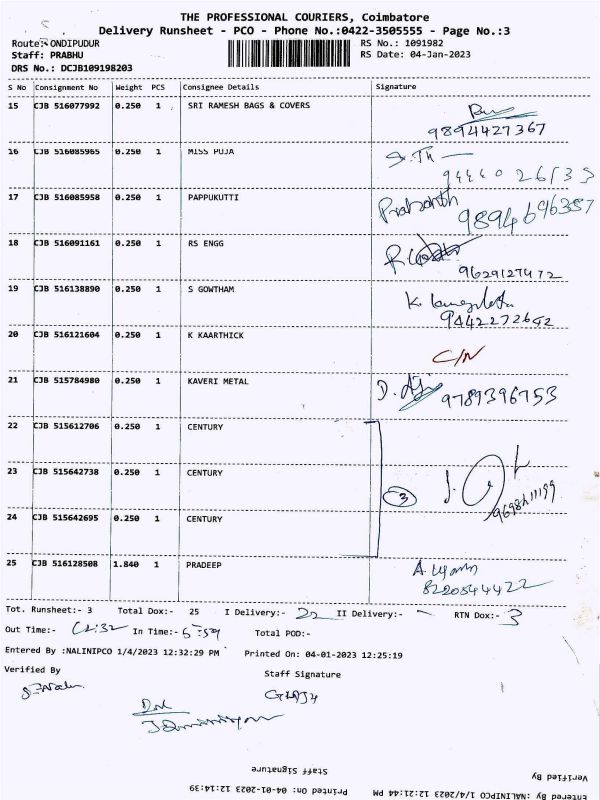 THE PROFESSIONAL COURIERS, Coimbatore
Delivery Runsheet - PCO - Phone No.:0422-3505555 - Page No.:3
Route: ONDIPUDUR RS No.: 1091982
Staff: PRABHU RS Date: 04-Jan-2023
DRS No.: DCJB109198203
S No Consignment No Weight PCS Consignee Details Signature
15 CJB 516077992 0.250 1 SRI RAMESH BAGS & COVERS
9894427367
16 CJB 516085965 0.250 1 MISS PUJA
17 CJB 516085958 0.250 1 PAPPUKUTTI Prabanth
9894696387
18 CJB 516091161 0.250 1 RS ENGG
9629127472
19 CJB 516138890 0.250 1 S GOWTHAM K.
9442272642
20 CJB 516121604 0.250 1 K KAARTHICK C/N
21 CJB 515784980 0.250 1 KAVERI METAL D.
9789396753
22 CJB 515612706 0.250 1 CENTURY
23 CJB 515642738 0.250 1 CENTURY 3
24 CJB 515642695 0.250 1 CENTURY
25 CJB 516128508 1.840 1 PRADEEP A.
8220544422
Tot. Runsheet:- 3 Total Dox:- 25 I Delivery:- 22 II Delivery:- - RTN Dox:- 3
Out Time:- 12:32 In Time:- Total POD:-
Entered By :NALINIPCO 1/4/2023 12:32:29 PM Printed On: 04-01-2023 12:25:19
Verified By Staff Signature
Staff Signature
Verified By
Printed On: 04-01-2023 12:14:39
Entered By :NALINIPCO 1/4/2023 12:21:44 PM